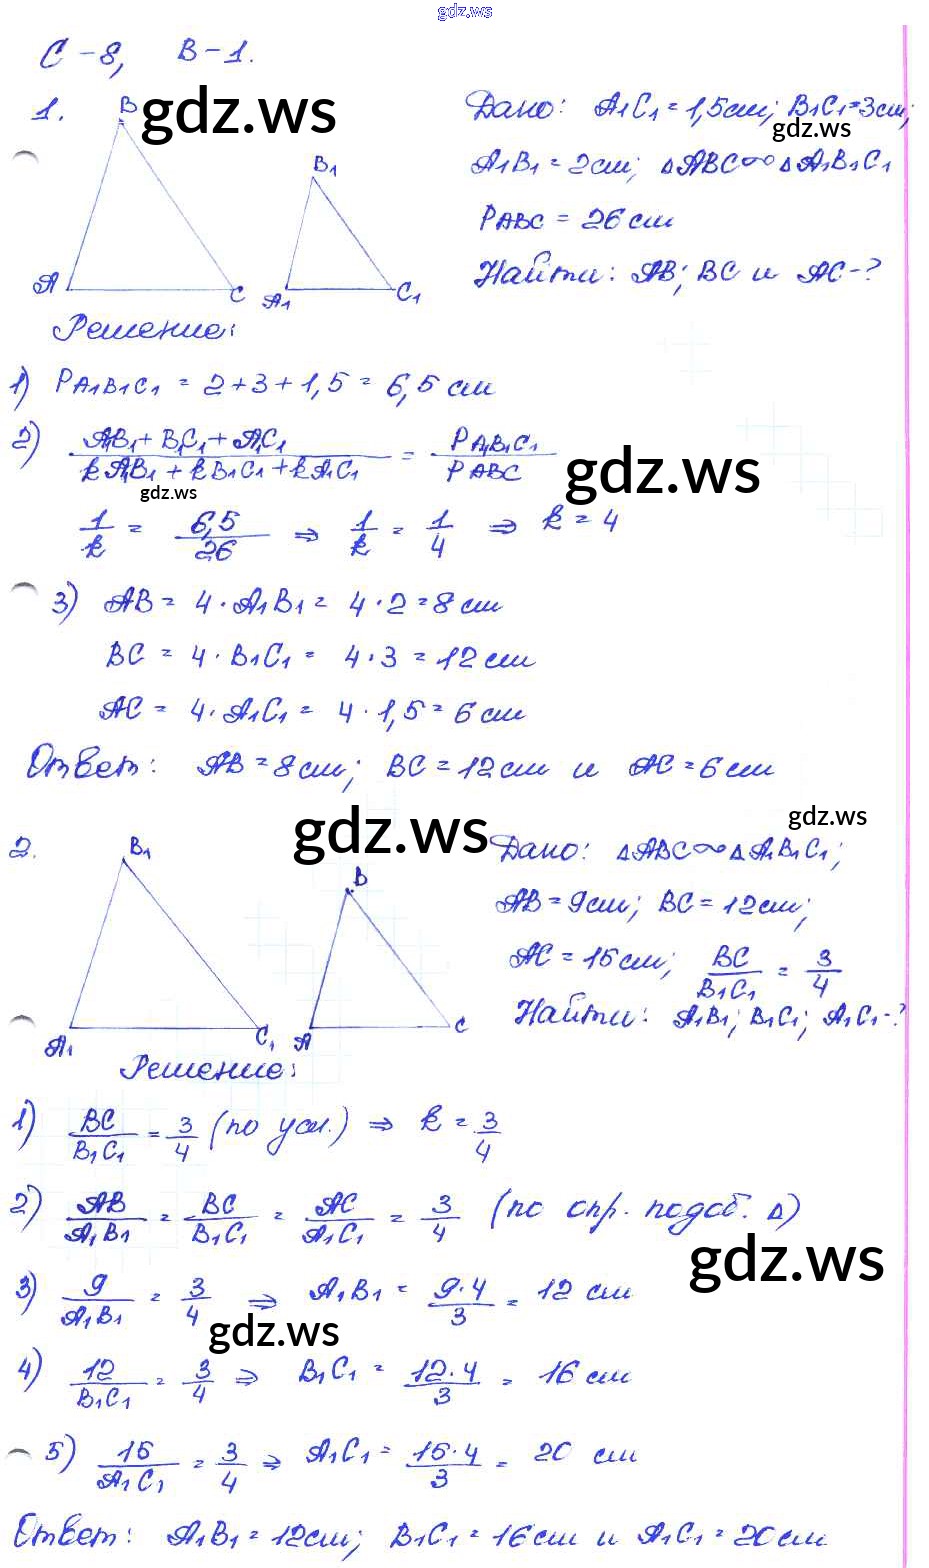 gdz.ws
С-8, В-1.
1.
B
gdz.ws
Дано: A₁C₁=1,5см; B₁C₁=3см;
gdz.ws
B₁
A₁B₁=2см; △ABC∾△A₁B₁C₁
P ABC = 26 см
Найти: AB; BC и AC-?
A
C
A₁
C₁
Решение:
1) P A₁B₁C₁ = 2+3+1,5 = 6,5 см
2) (A₁B₁ + B₁C₁ + A₁C₁)/(kA₁B₁ + kB₁C₁ + kA₁C₁) = P A₁B₁C₁/P ABC
gdz.ws
gdz.ws
1/k = 6,5/26 ⇒ 1/k = 1/4 ⇒ k = 4
3) AB = 4·A₁B₁ = 4·2 = 8 см
BC = 4·B₁C₁ = 4·3 = 12 см
AC = 4·A₁C₁ = 4·1,5 = 6 см
Ответ: AB = 8 см; BC = 12 см и AC = 6 см
gdz.ws
gdz.ws
2.
B₁
B
Дано: △ABC∾△A₁B₁C₁;
AB = 9см; BC = 12см;
AC = 15 см; BC/B₁C₁ = 3/4
Найти: A₁B₁; B₁C₁; A₁C₁-?
A₁
C₁
A
C
Решение:
1) BC/B₁C₁ = 3/4 (по усл.) ⇒ k = 3/4
2) AB/A₁B₁ = BC/B₁C₁ = AC/A₁C₁ = 3/4 (по опр. подоб. △)
gdz.ws
3) 9/A₁B₁ = 3/4 ⇒ A₁B₁ = 9·4/3 = 12 см
gdz.ws
4) 12/B₁C₁ = 3/4 ⇒ B₁C₁ = 12·4/3 = 16 см
5) 15/A₁C₁ = 3/4 ⇒ A₁C₁ = 15·4/3 = 20 см
Ответ: A₁B₁ = 12см; B₁C₁ = 16см и A₁C₁ = 20см